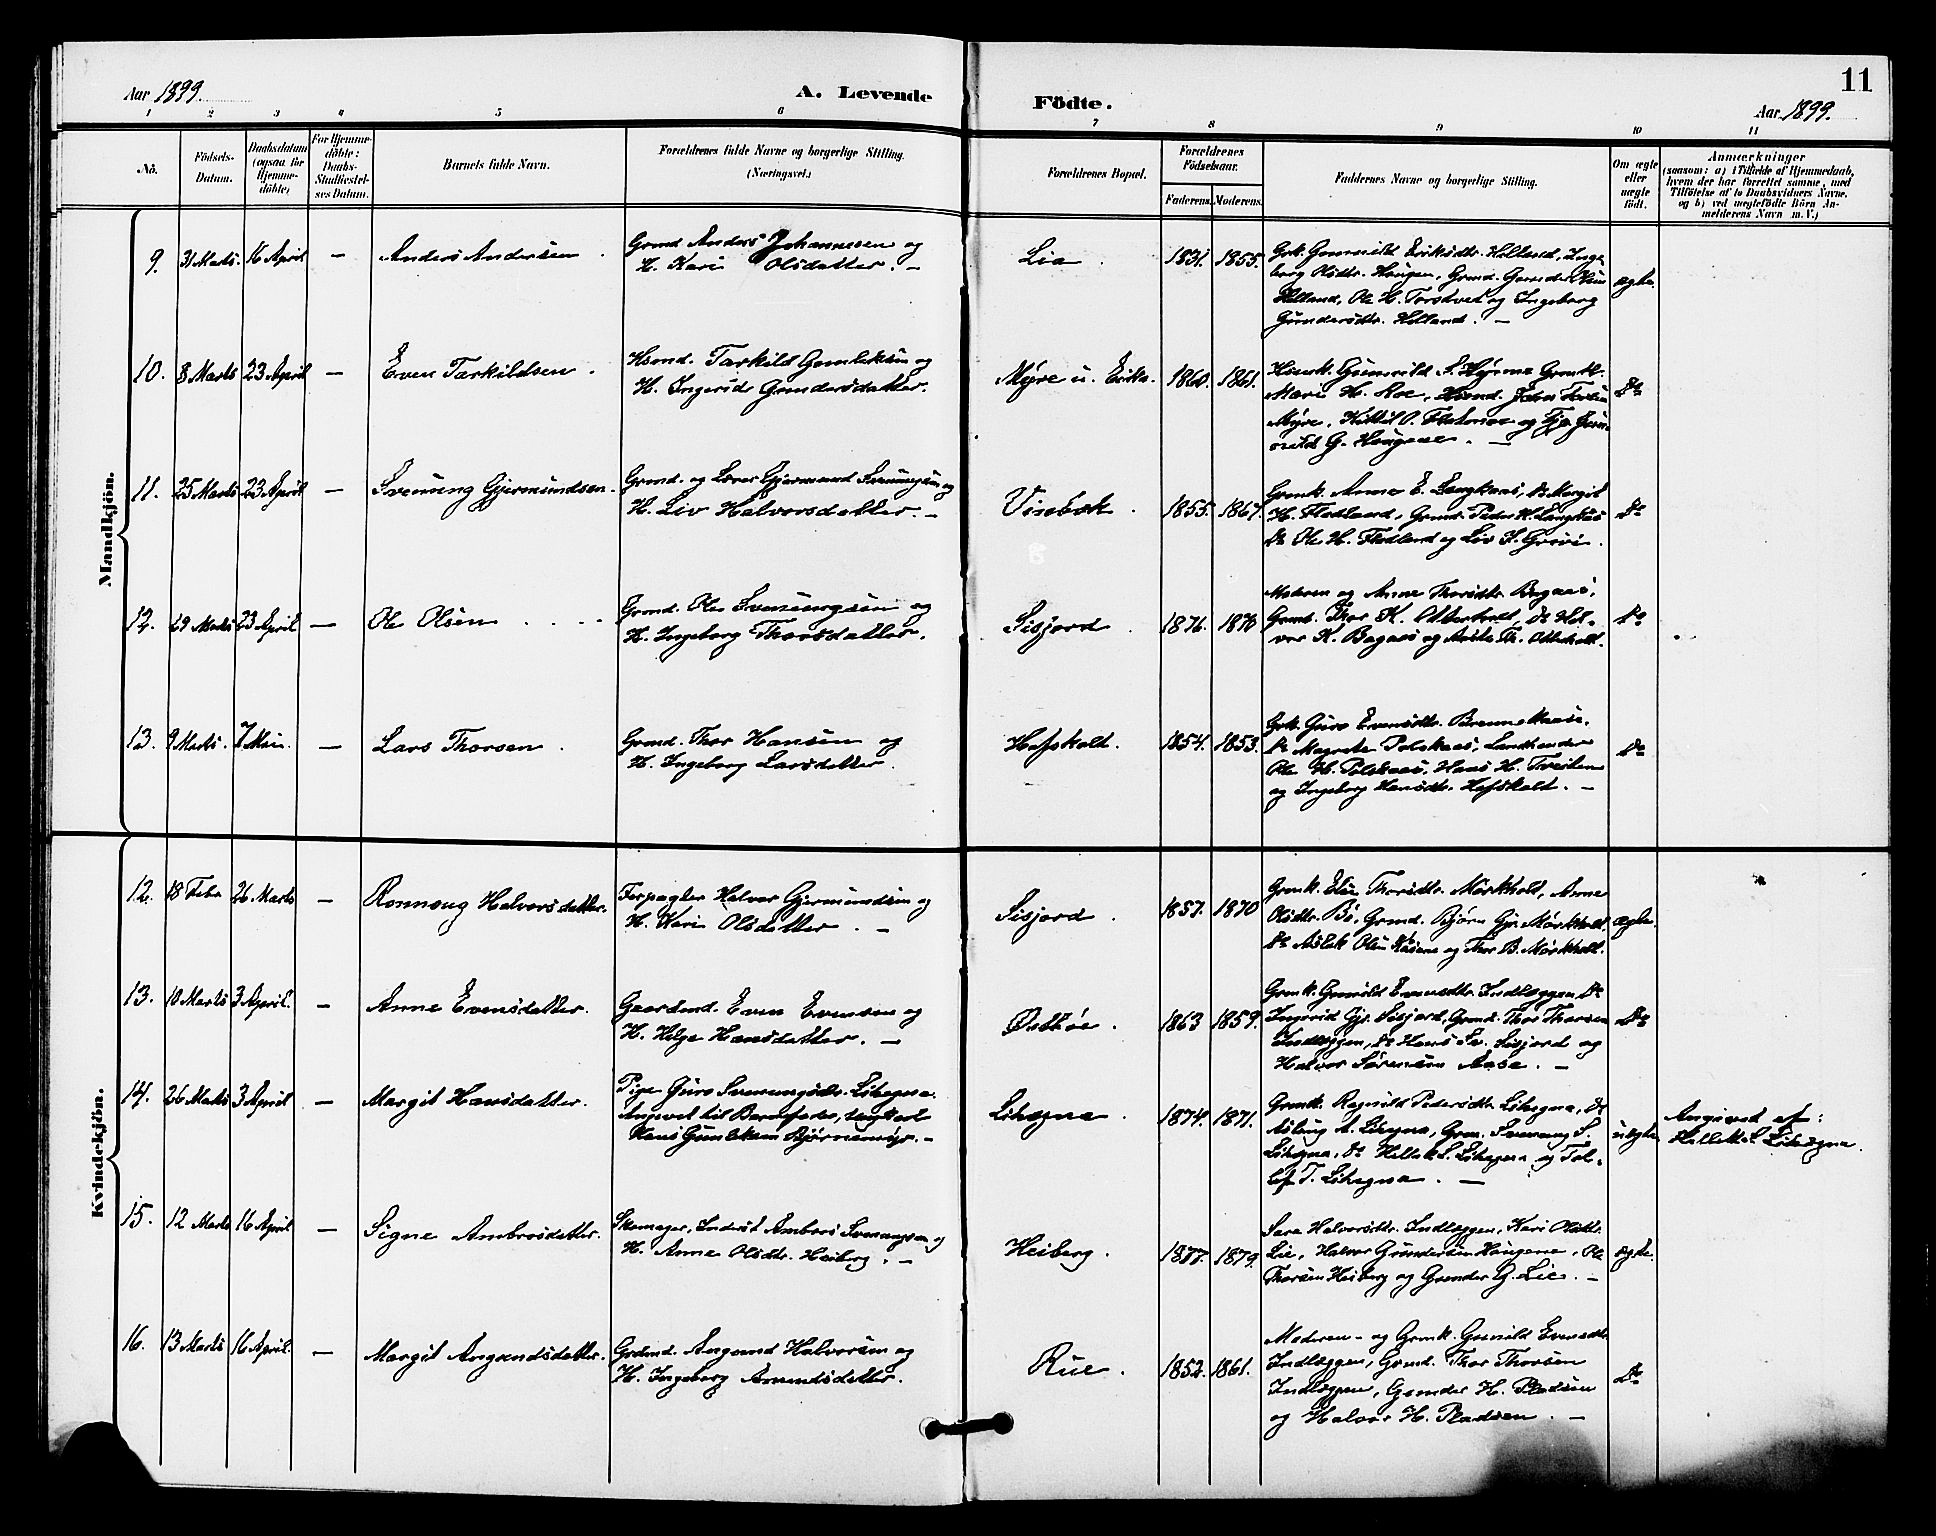 Aar 1899.
A. Levende
Födte.
11
Aar 1899.
1 2 3 4 5 6 7 8 9 10 11
No.
Födsels-
Datum.
Daabsdatum
(ogsaa for
Hjemme-
döbte)
For Hjemme-
döbte:
Daabs-
Stadfæstel-
ses Datum.
Barnets fulde Navn.
Forældrenes fulde Navne og borgerlige Stilling.
(Næringsvei.)
Forældrenes Bopæl.
Forældrenes
Födselsaar.
Faderens. Moderens.
Faddernes Navne og borgerlige Stilling.
Om ægte
eller
uægte
födt.
Anmærkninger
(saasom: a) i Tilfælde af Hjemmedaab,
hvem der har forrettet samme, med
Tilföielse af to Daabsvidners Navne,
og b) ved uegtefödte Börn An-
melderens Navn m. V.)
Mandkjön.
9. 31 Marts. 16 April — Anders Andersen.
Grmd. Anders Johannesen og
H. Kari Olsdatter. —
Lia. 1831. 1855.
Grk. Gunnild Eriksdtr. Helland, Inge-
borg Olsdtr. Haugen, Grmd. Gunder
Helland, Ole H. Torstvet og Ingeborg
Gundersdtr. Helland. —
ægte.
10. 8 Marts 23 April — Even Tarkildsen.
Hsmd. Tarkild Gunleksen og
H. Ingerid Gundersdatter.
Myre u. Erika. 1860. 1861.
Gunnild S. Grmk.
H. Roe, Hsmd. John
Myre, Kittil O. og
G. Haugene. —
Do
11. 25 Marts 23 April — Svenung Gjermundsen.
Grmd. og Lærer Gjermund Svenungsen og
H. Liv Halvorsdatter. —
Vinebæk. 1855. 1867.
Grmk. Anne E. Langkaas, Do Margit
H. Flodland, Grmd. Peder H. Langkaas
Do Ole H. Flodland og Liv S. Gravi.
Do
12. 29 Marts 23 April — Ole Olsen
Grmd. Ole Svenungsen og
H. Ingeborg Thorsdatter.
Sisjord. 1876. 1878
Moderen og Anne Thorsdtr. Bagaas,
Grmd. Thor K. Otterholt, Do Hal-
vor K. Bagaas og Th. Otterholt.
Do
13. 9 Marts. 7 Mai. — Lars Thorsen.
Grmd. Thor Hansen og
H. Ingeborg Larsdatter.
Hafskolt. 1854. 1853.
Grk. Guro Evensdtr.
Do Magrete Polskaas, Landhandler
Ole H. Polskaas, Hans H. Tveiten
og Ingeborg Hansdtr. Hafskolt. —
Do
Kvindekjön.
12. 18 Febr 26 Marts — Ronnaug Halvorsdatter.
Forpagter Halvor Gjermundsen og
H. Kari Olsdatter. —
Sisjord. 1857. 1870
Grmk. Elie Thorsdtr. Mörkholt, Anne
Olsdtr. Bö, Grmd. Björn Gj. Mörkholt,
Do Aslak Olsen og Thor B. Mörkholt.
ægte.
13. 10 Marts 3 April. — Anne Evensdatter.
Gaardmd. Even Evensen og
H. Helge Hansdatter. —
Østböe. 1863 1859.
Grmk. Gunild Evensdtr. Indlæggen, Do
Ingerid Gj. Sisjord, Grmd. Thor Thorsen
Indlæggen, Do Hans Sv. Sisjord og
Halvor Sörensen Aase. —
Do
14. 26 Marts 3 April — Margit Hansdatter.
Pige Guro Svenungsdtr. Lihegna.
Angivet til Barnefader, Ungkarl
Hans Gunleksen Bjørnemyr. —
Lihegna. 1874. 1871.
Grmk. Ragnild Pedersdtr. Lihegna, Do
Aslaug A. Lihegna, Grm. Svenung S.
Lihegna, Do Hellek S. Lihegna og Tol-
lef T. Lihegna. —
uægte.
Angivet af:
Hellek S. Lihegna.
15. 12 Marts 16 April — Signe Ambrosdatter.
Skomager, Inderst Ambros Svenungsen og
H. Anne Olsdtr. Heiberg. —
Heiberg. 1877. 1879.
Sara Halvorsdtr. Indlæggen, Kari Olsdtr.
Lie, Halvor Gundersen Haugene, Ole
Thorsen Heiberg og Gunder G. Lie. —
ægte.
16. 13 Marts 16 April. — Margit Angundsdatter.
Grdmd. Angund Halvorsen og
H. Ingeborg Amundsdatter.
Rue. 1852. 1861.
Moderen — og Grmk. Gunild Evensdtr.
Indlæggen, Grmd. Thor Thorsen
Indlæggen, Gunder H. Pladsen
og Halvor H. Pladsen. —
Do